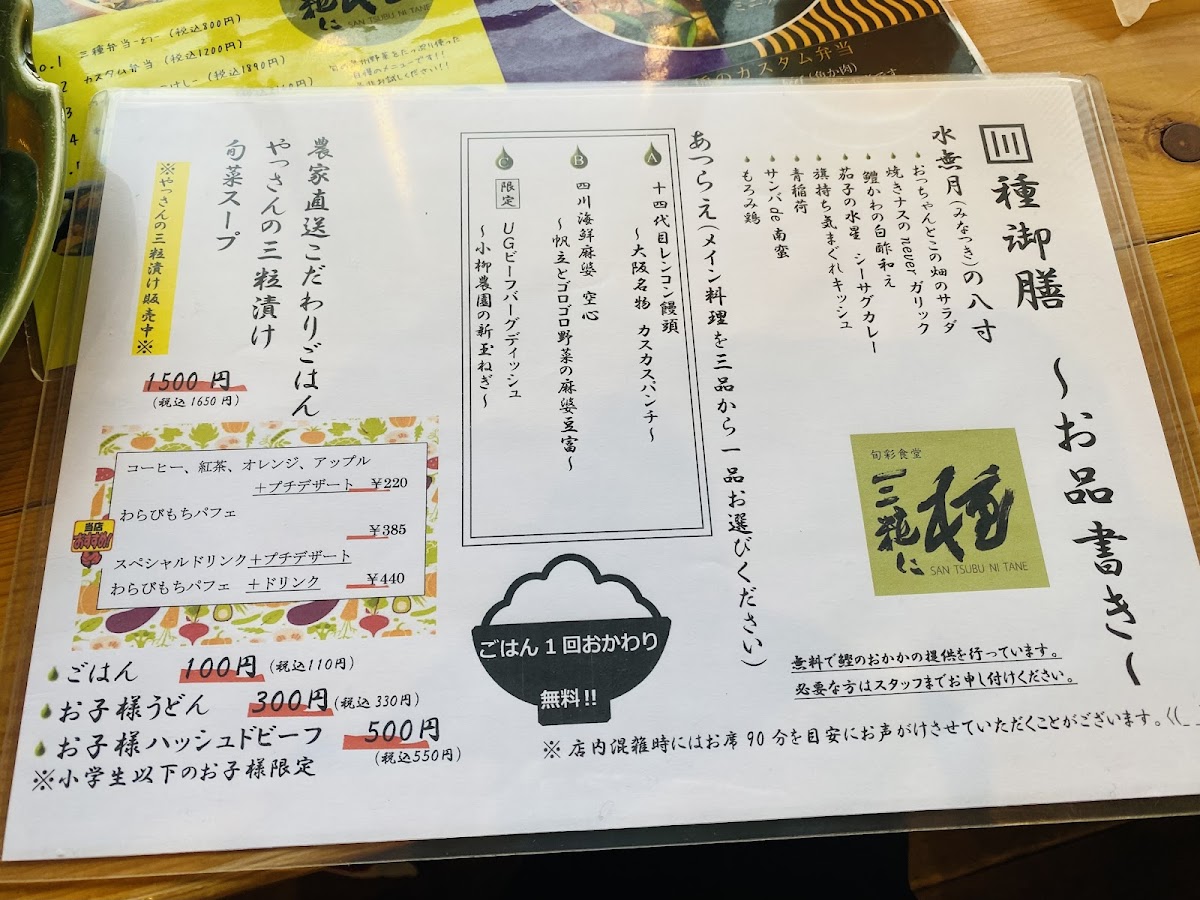 三種御膳 〜お品書き〜
水無月(みなつき)の八寸
おっちゃんとこの畑のサラダ
焼きナスのneverガリック
鱧かわの白酢和え
茄子の水星 シーサグカレー
旗持ち気まぐれキッシュ
青稲荷
サンバde南蛮
もろみ鶏
あつらえ(メイン料理を三品から一品お選びください)
A 十四代目レンコン饅頭
〜大阪名物 カスカスパンチ〜
B 四川海鮮麻婆 空心
〜帆立とゴロゴロ野菜の麻婆豆富〜
C 限定 UGビーフバーグディッシュ
〜小柳農園の新玉ねぎ〜
農家直送こだわりごはん
やっさんの三粒漬け
旬菜スープ
※やっさんの三粒漬け販売中※
1500円
(税込1650円)
コーヒー、紅茶、オレンジ、アップル
+プチデザート ¥220
わらびもちパフェ
¥385
当店
おすすめ!
スペシャルドリンク+プチデザート
わらびもちパフェ +ドリンク ¥440
ごはん 100円(税込110円)
お子様うどん 300円(税込330円)
お子様ハッシュドビーフ 500円
(税込550円)
※小学生以下のお子様限定
ごはん1回おかわり
無料!!
旬彩食堂
三粒に種
SAN TSUBU NI TANE
無料で鰹のおかかの提供を行っています。
必要な方はスタッフまでお申し付けください。
※店内混雑時にはお席90分を目安にお声がけさせていただくことがございます。
三種弁当 (税込800円)
カスタム弁当 (税込1200円)
(税込1890円)
SAN TSUBU NI TANE
のカスタム弁当